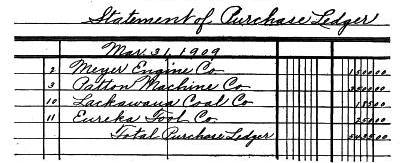 Statement of Purchase Ledger
Mar. 31, 1909
2 Meyer Engine Co 1500 00
3 Patton Machine Co 3500 00
10 Lackawana Coal Co 185 00
11 Eureka Tool Co 250 00
Total Purchase Ledger 5435 00